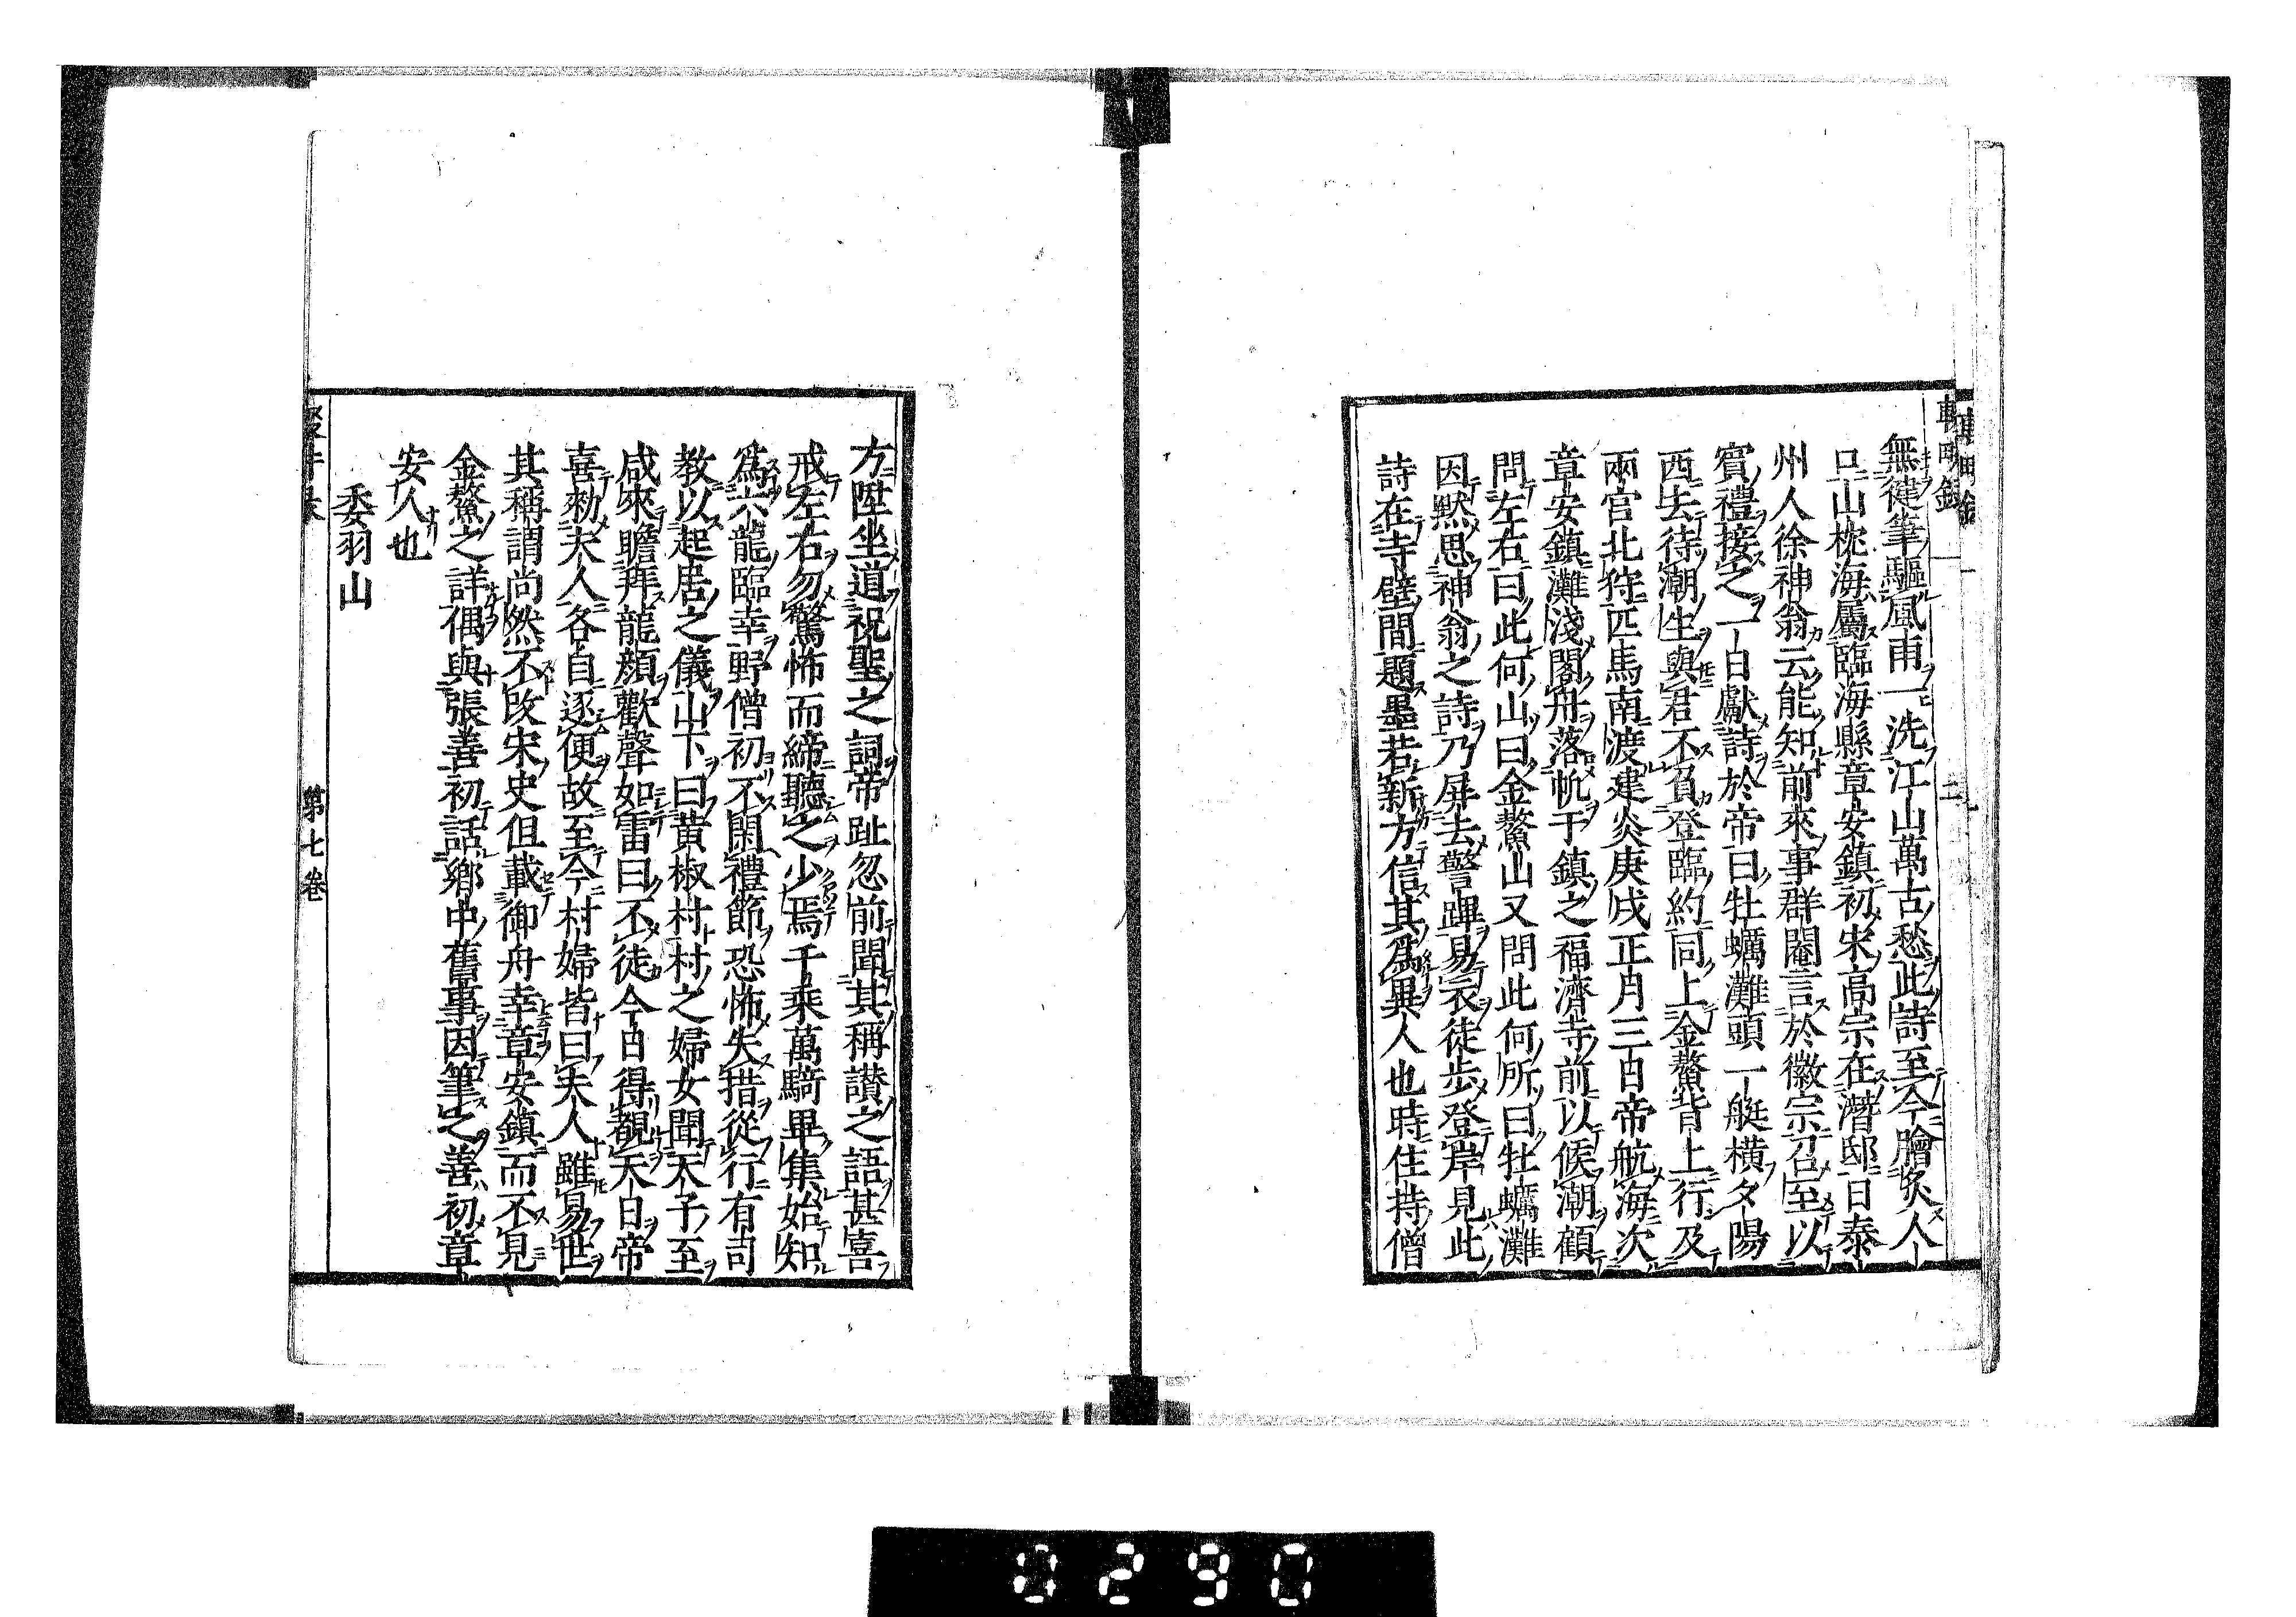 無健筆驅風雨一洗江山萬古愁此詩至今膾炙人
口山椀海屬臨海縣章安鎮初宋高宗在潛邸日泰
州人徐神翁云能知前來事群閹言於徽宗召至以
賓禮接之一日獻詩於帝曰牡蠣灘頭一艇橫夕陽
西去待潮生與君不負登臨約同上金鰲背上行及
兩宮北狩匹馬南渡建炎庚戌正月三日帝航海次
章安鎮灘淺閣舟落帆于鎮之福濟寺前以候潮顧
問左右曰此何山曰金鰲山又問此何所曰牡蠣灘
因默思神翁之詩乃屏去警蹕易衣徒步登岸見此
詩在寺壁間題墨若新方信其爲異人也時住持僧
方陞坐道祝聖之詞帝趾忽前聞其稱讃之語甚喜
戒左右勿驚怖而締聽之少焉千乘萬騎畢集始知
爲六龍臨幸野僧初不閑禮節恐怖失措從行有司
教以起居之儀山下曰黃椒村村之婦女聞天子至
咸來瞻拜龍顔歡聲如雷曰不徒今日得覩天日帝
喜勑夫人各自逐便故至今村婦皆曰夫人雖易世
其稱謂尚然不改宋史但載御舟幸章安鎮而不見
金鰲之詳偶與張善初話鄉中舊事因筆之善初章
安人也
委羽山
第七卷